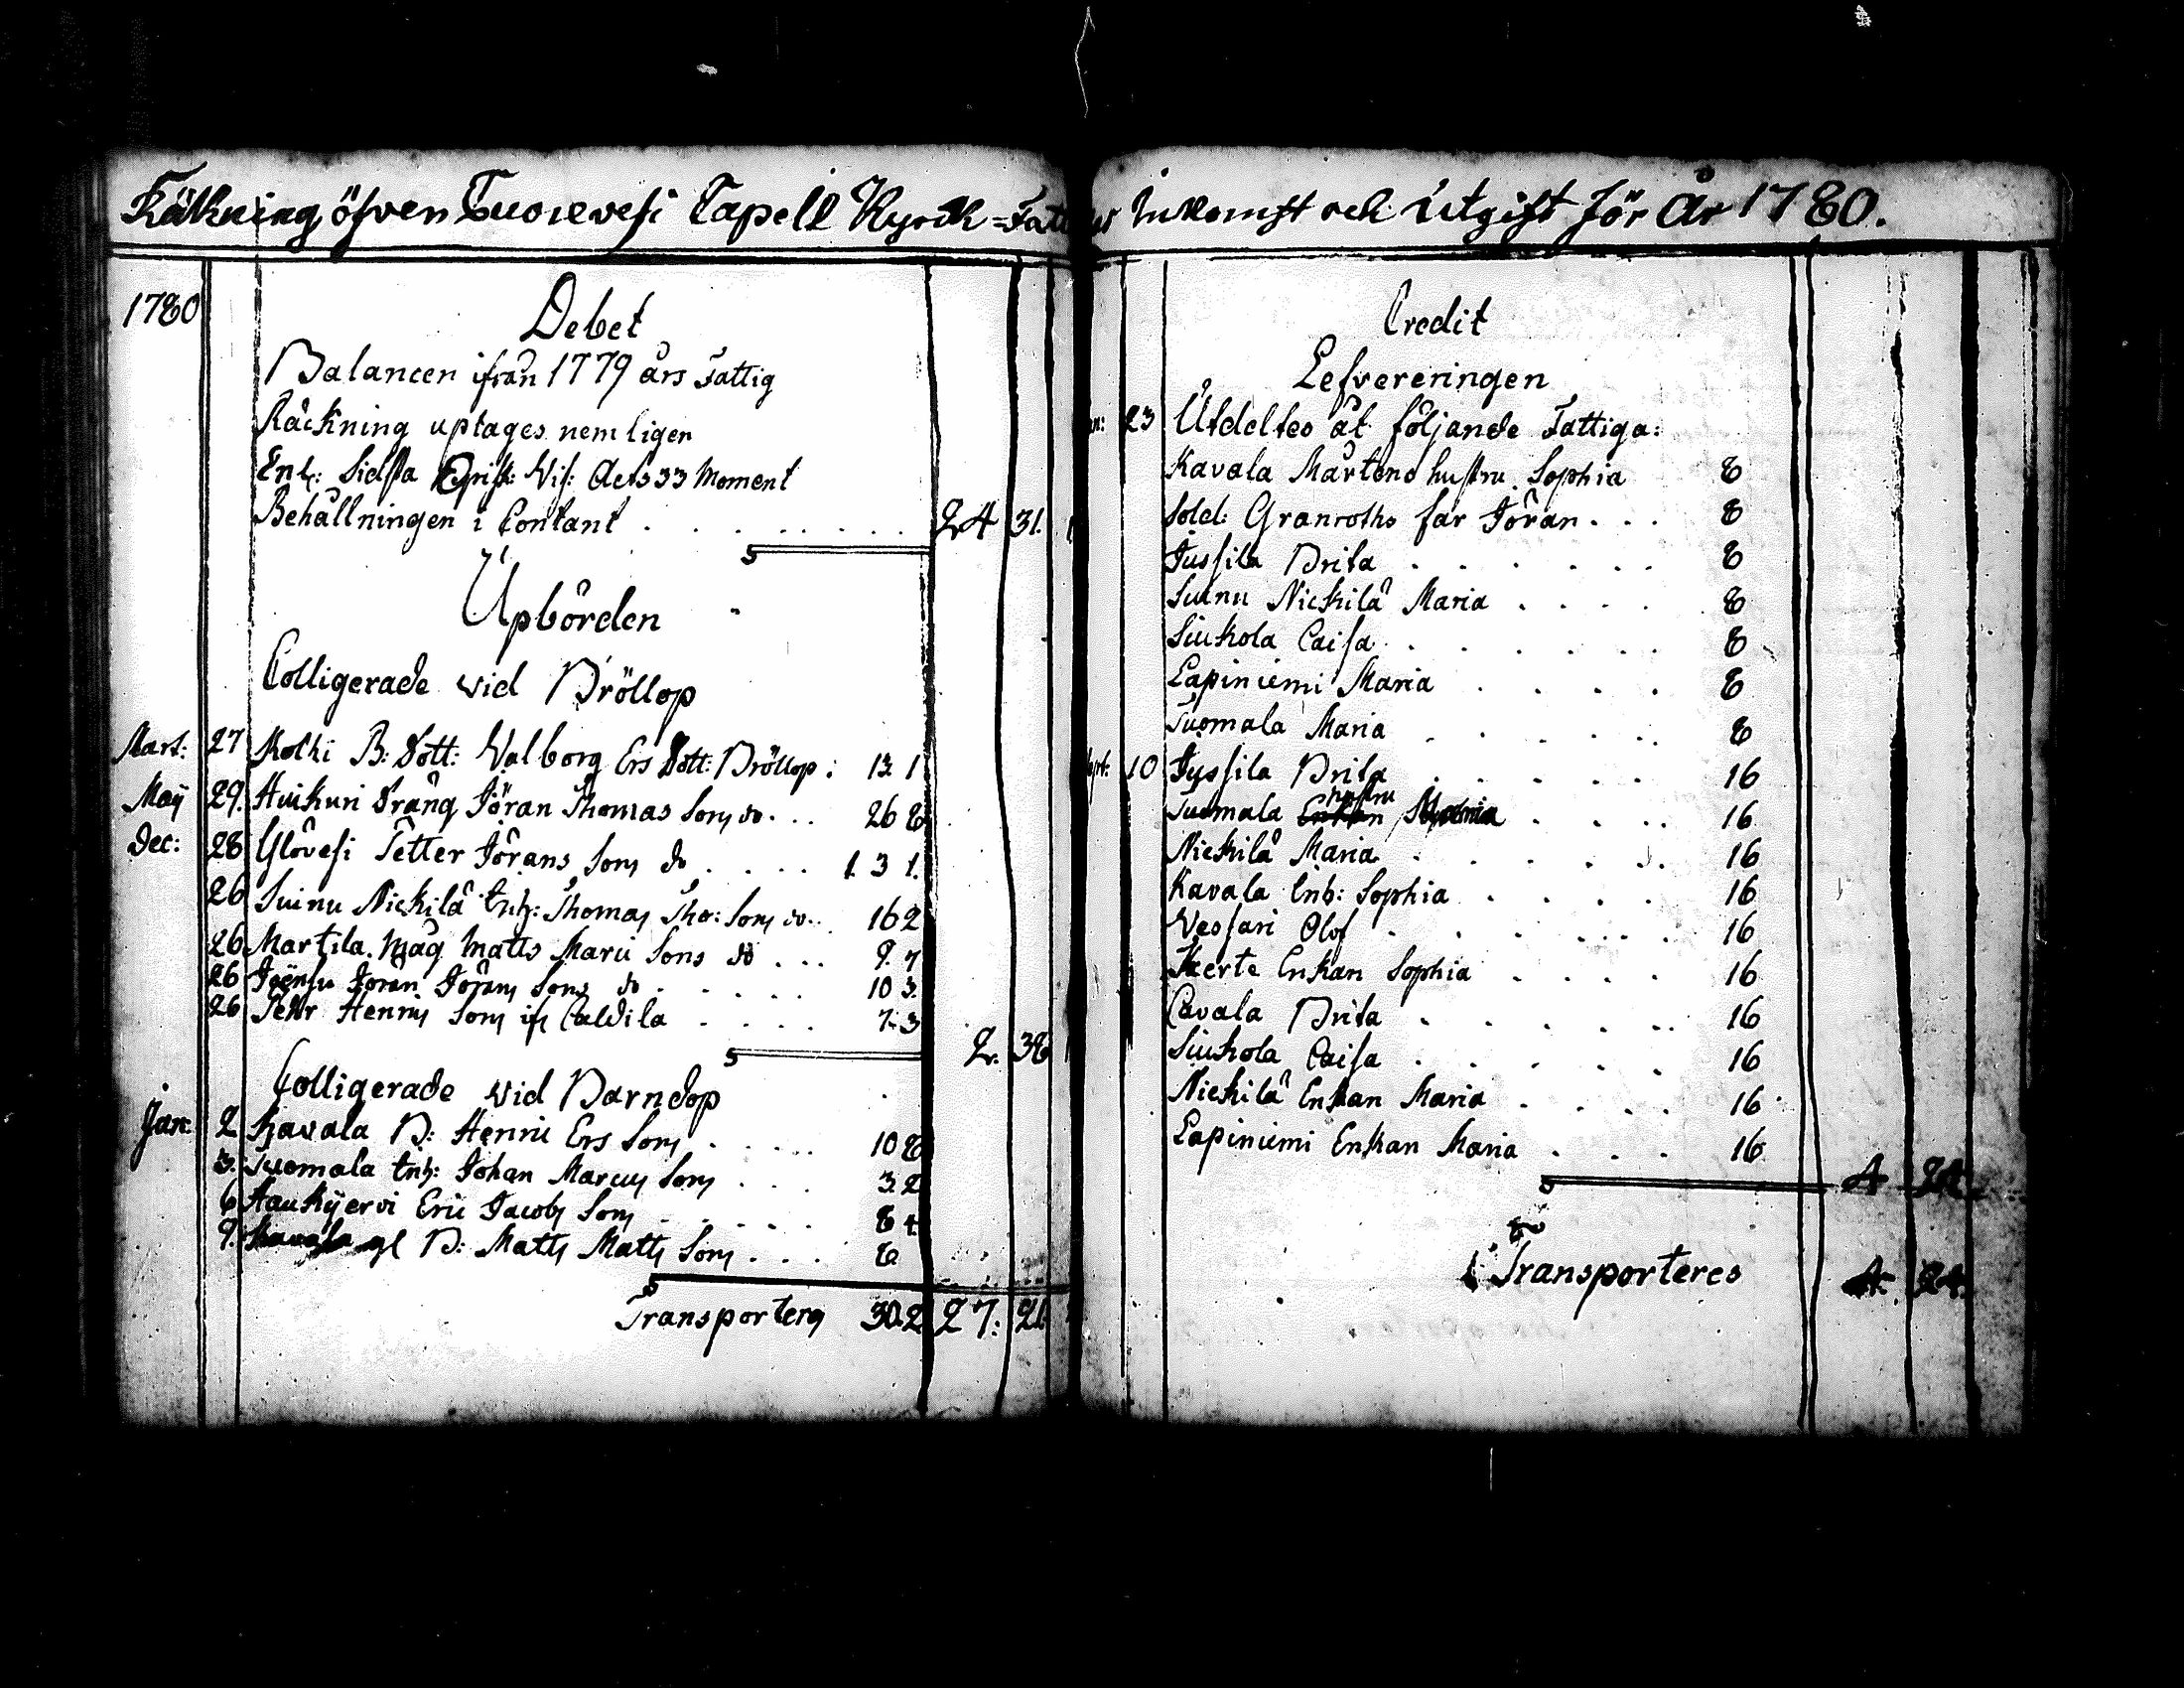 Räkning öfver Tuorevesi Capell Kyrck=Fatt
1780
Debet
Balancen ifrån 1779 års Fattig
Räckning uptages nemligen
Enl: sidsta Episk: Vis: Acts 33 Moment
Behållningen i Contant . . . . . . . 24 31.
Upbörden
Colligerade vid Bröllop
Mart: 27 Kolhi B: Dott: Valborg Ers Dott: Bröllop: 13 1
Maij 29. Huikuri Dräng Jöran Thomas Son do . . . 26 8
Dec: 28 Ylövesi Petter Jörans Son do . . . . 1. 3 1.
26 Suinu Nickilä Enk: Thomas Tho: Son do . . 16 2
26 Martila Måg Matts Marci Sons do . . . 9. 7
26 Jöran Jörans Sons do . . . . . 10 3.
26 Pehr Henrics Son ifr Caldila . . . . 7. 3
2. 38
Colligerade vid Barndop
Jan: 2 Kavala B: Henric Ers Son . . . . . 10 8
3. Suomala Enk: Johan Marcus Son . . . 3. 2
6 Haukijervi Eric Jacobs Son . . . . . 8 4.
9. gl B: Matts Matts Son . . . 8
Transporteras 30. 2 27: 21.
Inkomst och Utgift för År 1780.
Credit
Lefvereringen
23 Utdeltes åt följande Fattiga:
Kavala Mårtens hustru Sophia 8
Sold: Granroths far Jöran . . . 8
Jussila Brita . . . . . . 8
Suinu Nickilä Maria . . . . 8
Siukola Caisa . . . . . . 8
Lapiniemi Maria . . . . 8
Suomala Maria . . . . . 8
10 Jussila Brita . . . . . 16
hustru
Suomala Enkan Maria . . . . 16
Nickilä Maria . . . . . . 16
Kavala Enk: Sophia . . . . 16
Vessari Olof . . . . . . 16
Kerte Enkan Sophia . . . . 16
Cavala Brita . . . . . . 16
Siukola Caisa . . . . . 16
Nickilä Enkan Maria . . . . 16
Lapiniemi Enkan Maria . . . 16
4 24
Transporteres 4. 24.